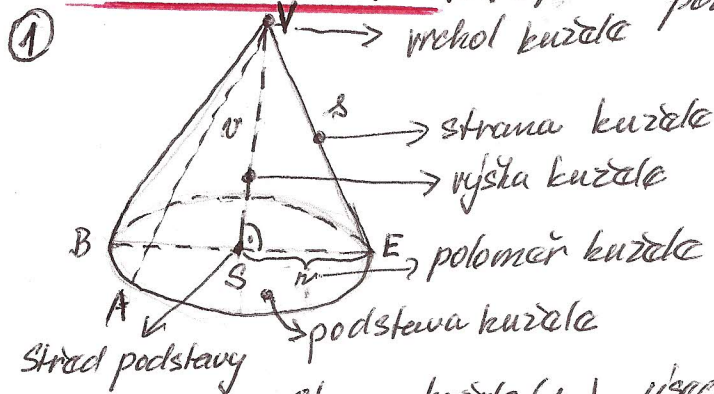 ①
V
vrchol kužele
s
strana kužele
v
výška kužele
B
S
E
r
poloměr kužele
A
podstava kužele
Střed podstavy